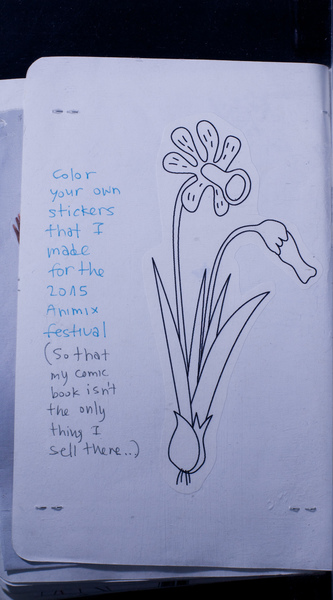 Color
your own
stickers
that I
made
for the
2015
Animix
festival
(So that
my comic
book isn't
the only
thing I
sell there..)